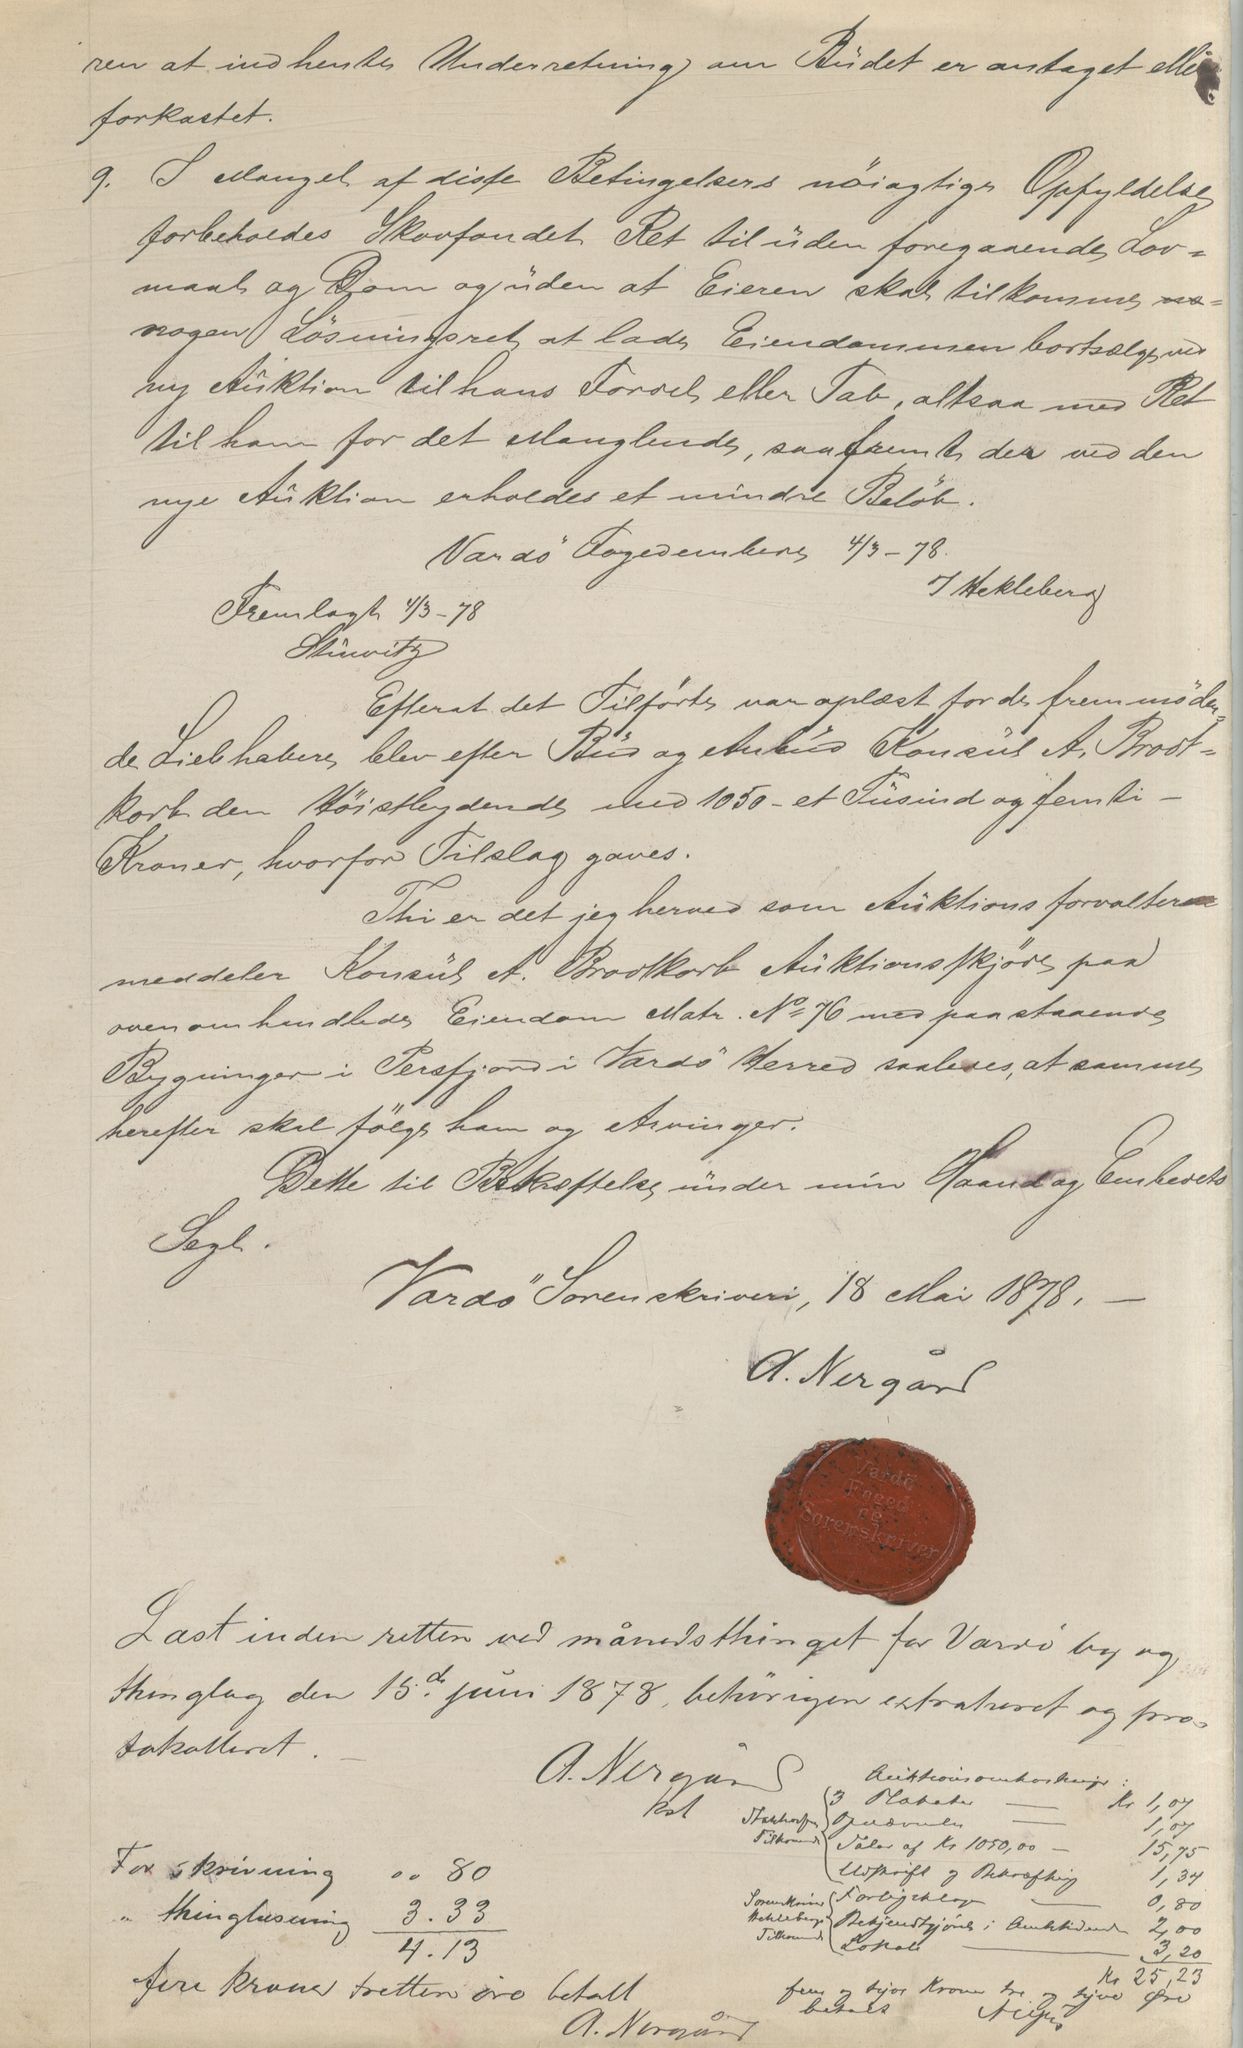 ren at indhente Underretning om Büdet er antaget eller
forkastet.
9. I Mangel af disse Betingelsers nöiagtige Opfyldelse
forbeholdes Skovfondet Ret til üden foregaaende Lov=
maal og Dom og üden at Eieren skal tilkomme
nogen Lösningsret at lade Eiendommen bortsælge ved
ny Aüktion til hans Fordel eller Tab, altsaa med Ret
til ham for det Manglende, saafremt der ved den
nye Aüktion erholdes et mindre Belöb.
Vardö Fogedembede 4/3-78.
J Hekleberg
Fremlagt 4/3-78
Efterat det Tilförte var oplæst for de fremmöden=
de Liebhabere blev efter Büd og Anbüd Konsül A. Brodt=
korb den Höistbydende med 1050 - et Tüsind og femti -
Kroner, hvorfor Tilslag gaves.
Thi er det jeg herved som Aüktionsforvalter
meddeler Konsül A. Brodtkorb Aüktionsskjöde paa
ovenomhandlede Eiendom Matr. No 76 med paastaaende
Bygninger i Persfjord i Vardö Herred saaledes, at samme
herefter skal fölge ham og Arvinger.
Dette til Bekræftelse ünder min Haand og Embeds
Segl.
Vardö Sorenskriveri, 18 Mai 1878. —
A. Nergård
Vardö
Foged
og
Sorenskriver
Læst inden retten ved månedsthinget for Vardö by og
thinglag den 15de juni 1878, behörigen extraheret og pro-
tokolleret. —
A. Nergård
kst
Auktionsomkostninger:
3 Plakater — Kr 1,07
1,07
Tilkomme
Salær af Kr 1050,00 — 15,75
Udskrift og Bekræftelse 1,34
Sorenskriver
Heklebergs
Tilkomme
0,80
2,00
Lokale — 3,20
Kr 25,23
fem og tyve Kroner tre og tyve Øre
betalt
For skrivning 00 80
" thinglæsning 3.33
4.13
fire kroner tretten öre betalt
A. Nergård